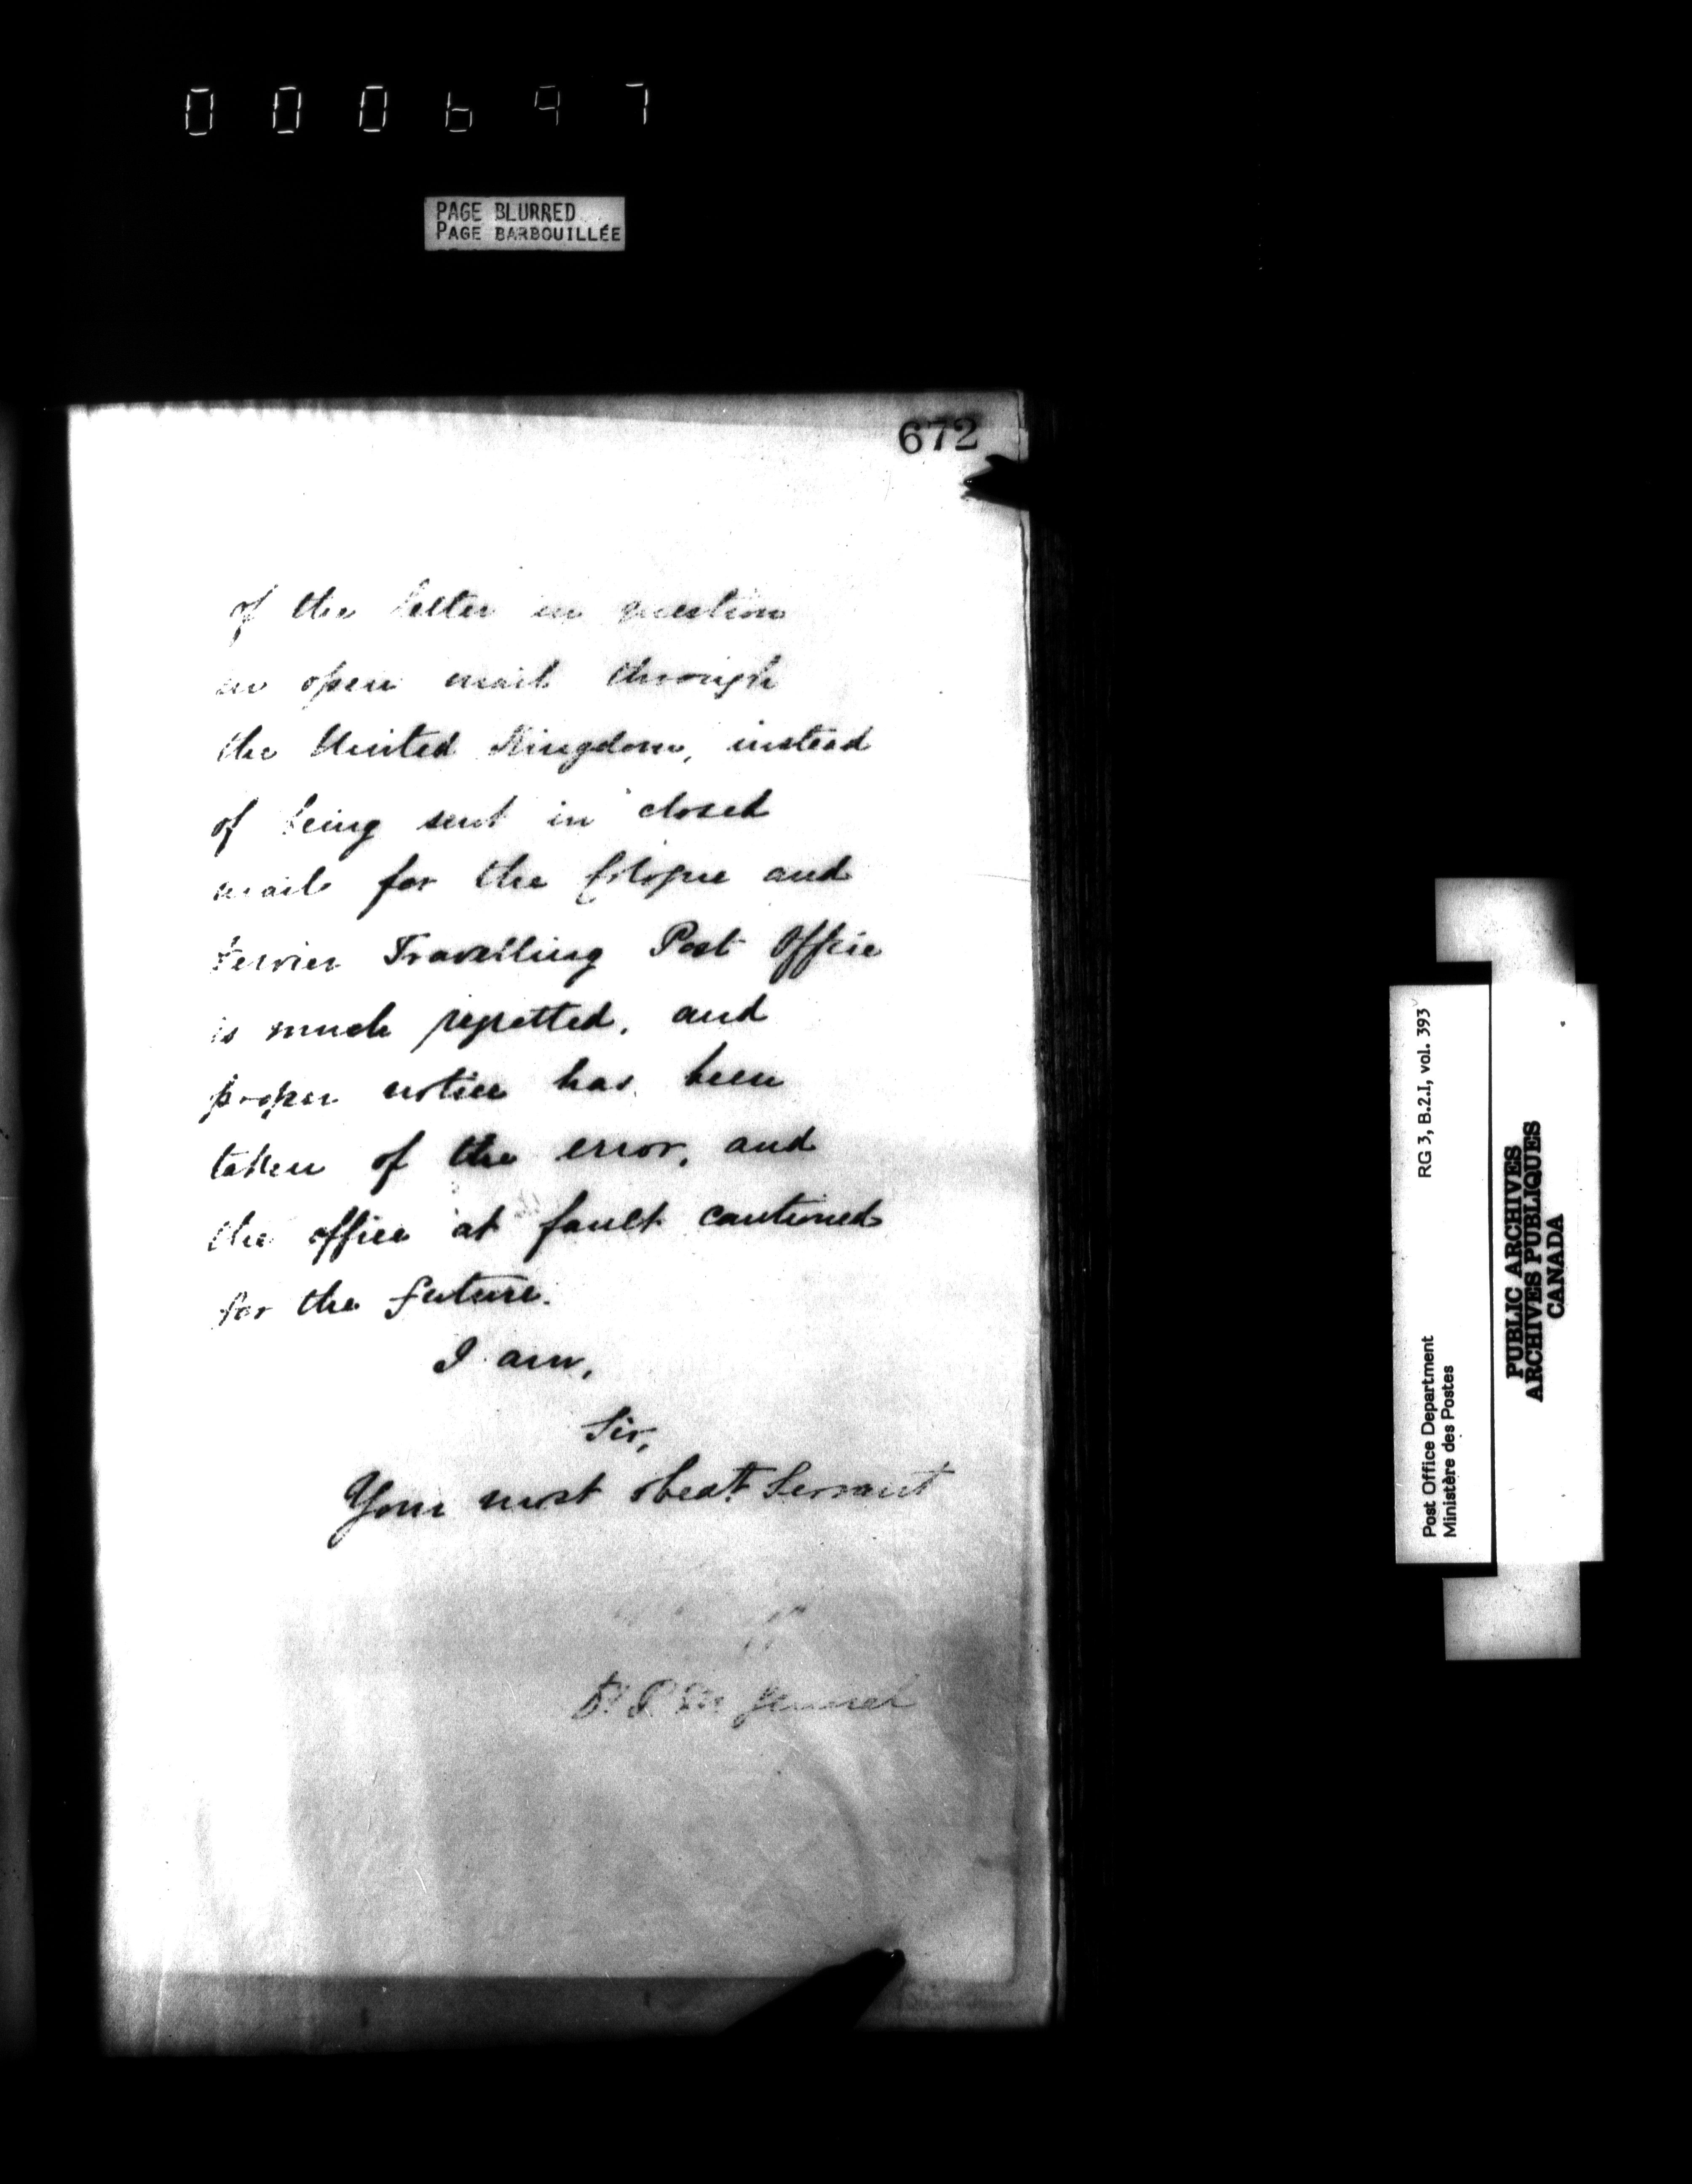 000697
PAGE BLURRED
PAGE BARBOUILLÉE
672
of the letter in question
in open mail through
the United Kingdom, instead
of being sent in closed
mail for the Cologne and
Verviers Travelling Post Office
is much regretted, and
proper notice has been
taken of the error, and
the office at fault cautioned
for the future.
I am,
Sir,
Your most obedt. Servant
D. P. M. General
RG 3, B.2.I, vol. 393
Post Office Department
Ministère des Postes
PUBLIC ARCHIVES
ARCHIVES PUBLIQUES
CANADA